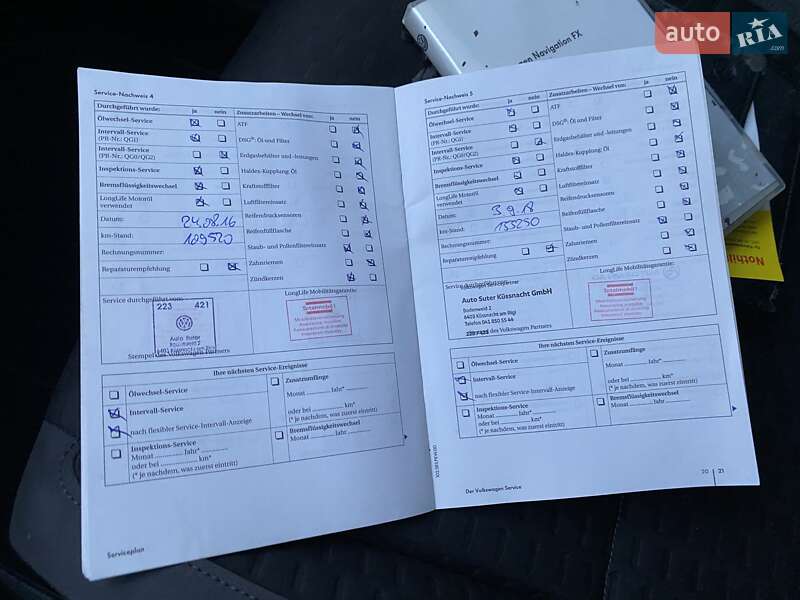 auto RIA.com
en Navigation FX
Nothil
Service-Nachweis 4
Durchgeführt wurde: ja nein Zusatzarbeiten – Wechsel von: ja nein
Ölwechsel-Service ATF
Intervall-Service
(PR-Nr.: QG1) DSG®: Öl und Filter
Intervall-Service
(PR-Nr.: QG0/QG2) Erdgasbehälter und -leitungen
Inspektions-Service Haldex-Kupplung: Öl
Bremsflüssigkeitswechsel Kraftstofffilter
LongLife Motoröl
verwendet Luftfiltereinsatz
Datum: 24.08.16 Reifendrucksensoren
km-Stand: 109520 Reifenfüllflasche
Rechnungsnummer: Staub- und Pollenfiltereinsatz
Reparaturempfehlung Zahnriemen
Zündkerzen
Service durchgeführt vom: LongLife Mobilitätsgarantie:
223 421
Auto Suter
Stempel des Volkswagen Partners
Ihre nächsten Service-Ereignisse
Ölwechsel-Service Zusatzumfänge
Monat ............ Jahr* ............
Intervall-Service oder bei ............ km*
(* je nachdem, was zuerst eintritt)
nach flexibler Service-Intervall-Anzeige
Inspektions-Service Bremsflüssigkeitswechsel
Monat ............ Jahr* ............ Monat ............ Jahr ............
oder bei ............ km*
(* je nachdem, was zuerst eintritt)
Serviceplan
Service-Nachweis 5
Durchgeführt wurde: ja nein Zusatzarbeiten – Wechsel von: ja nein
Ölwechsel-Service ATF
Intervall-Service
(PR-Nr.: QG1) DSG®: Öl und Filter
Intervall-Service
(PR-Nr.: QG0/QG2) Erdgasbehälter und -leitungen
Inspektions-Service Haldex-Kupplung: Öl
Bremsflüssigkeitswechsel Kraftstofffilter
LongLife Motoröl
verwendet Luftfiltereinsatz
Datum: 3.9.18 Reifendrucksensoren
km-Stand: 155250 Reifenfüllflasche
Rechnungsnummer: Staub- und Pollenfiltereinsatz
Reparaturempfehlung Zahnriemen
Zündkerzen
Service durchgeführt LongLife Mobilitätsgarantie:
Auto Suter Küssnacht GmbH
Bodenweid 2
6403 Küssnacht am Rigi
Telefon 041 850 55 44
des Volkswagen Partners
Ihre nächsten Service-Ereignisse
Ölwechsel-Service Zusatzumfänge
Monat ............ Jahr* ............
Intervall-Service oder bei ............ km*
(* je nachdem, was zuerst eintritt)
nach flexibler Service-Intervall-Anzeige
Inspektions-Service Bremsflüssigkeitswechsel
Monat ............ Jahr* ............ Monat ............ Jahr ............
oder bei ............ km*
(* je nachdem, was zuerst eintritt)
Der Volkswagen Service
20 | 21